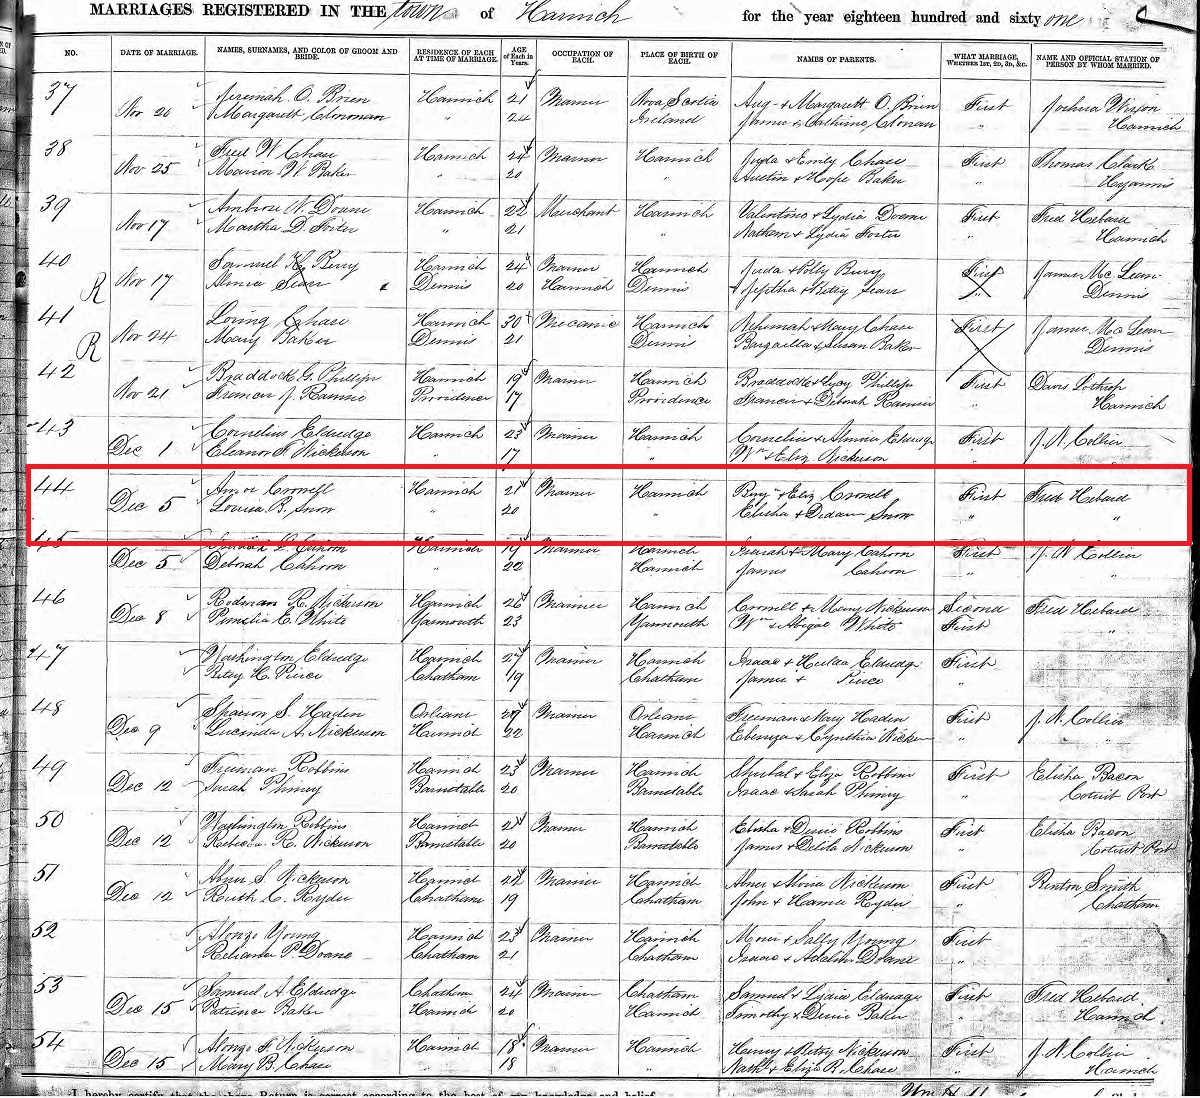 MARRIAGES REGISTERED IN THE town of Harwich for the year eighteen hundred and sixty one
NO. DATE OF MARRIAGE. NAMES, SURNAMES, AND COLOR OF GROOM AND BRIDE. RESIDENCE OF EACH AT TIME OF MARRIAGE. AGE of Each in Years. OCCUPATION OF EACH. PLACE OF BIRTH OF EACH. NAMES OF PARENTS. WHAT MARRIAGE, WHETHER 1ST, 2D, 3D, &C. NAME AND OFFICIAL STATION OF PERSON BY WHOM MARRIED.
37 Nov 20 Jeremiah O. Brien Harwich 21 Mariner Nova Scotia Aug & Margarett O. Brien First Joshua Wixon
Margarett " 24 Ireland James & Catherine " Harwich
38 Nov 25 Fred W Chase Harwich 24 Mariner Harwich Juda & Emily Chase First Thomas Clark
Marion W Baker " 20 " Austin & Hope Baker " Hyannis
39 Nov 17 Ambrose N. Doane Harwich 22 Merchant Harwich Valentine & Lydia Doane First Fred Hebard
Martha D. Foster " 21 " Nathan & Lydia Foster " Harwich
40 Nov 17 Samuel Berry Harwich 24 Mariner Harwich Juda & Polly Berry First James McLean
R Sears Dennis 20 Harwich Dennis Jeptha & Betsy Sears " Dennis
41 Nov 24 Loring Chase Harwich 30 Mecanic Harwich Nehemiah & Mary Chase First James McLean
R Mary Baker Dennis 21 Dennis & Susan Baker " Dennis
42 Nov 21 Braddock G. Phillips Harwich 19 Mariner Harwich Braddock & Phillips First Davis Lothrop
Frances J. Providence 17 Providence Francis & Deborah " Harwich
43 Dec 1 Cornelius Eldredge Harwich 23 Mariner Harwich Cornelius & Almira Eldredge First J. N. Collier
Eleanor F. Nickerson " 17 " Wm & Eliz Nickerson " "
44 Dec 5 Crowell Harwich 21 Mariner Harwich Benj & Eliz Crowell First Fred Hebard
Louisa B. Snow " 20 " Elisha & Snow " "
45 Dec 5 Cahoon Harwich 19 Mariner Harwich Isaiah & Mary Cahoon First J. N. Collier
Deborah Cahoon " 22 Harwich James Cahoon " "
46 Dec 8 Rodman R. Nickerson Harwich 26 Mariner Harwich Crowell & Mary Nickerson Second Fred Hebard
E. White Yarmouth 23 Yarmouth Wm & Abigal White First "
47 Washington Eldredge Harwich 27 Mariner Harwich Isaac & Hulda Eldredge First
Betsy H. Pierce Chatham 19 Chatham James & Pierce "
48 Dec 9 S. Haden Orleans Mariner Orleans Freeman & Mary Haden First J. N. Collier
Lucinda A. Nickerson Harwich 22 Harwich Ebenezer & Cynthia Nicker " "
49 Dec 12 Freeman Robbins Harwich 23 Mariner Harwich Shubal & Eliza Robbins First Elisha Bacon
Sarah Phinney Barnstable 20 Barnstable Isaac & Sarah Phinney " Cotuit Port
50 Dec 12 Washington Robbins Harwich 21 Mariner Harwich Elisha & Robbins First Elisha Bacon
Rebecca R. Nickerson Barnstable 20 Barnstable James & Delila Nickerson " Cotuit Port
51 Dec 12 Abner S Nickerson Harwich 22 Mariner Harwich Abner & Nickerson First Smith
Ruth C. Ryder Chatham 19 Chatham John & Ryder " Chatham
52 Alonzo Young Harwich 23 Mariner Harwich & Sally Young First
P. Doane Chatham 21 Chatham Isaac & Adeline Doane "
53 Dec 15 Samuel A Eldredge Chatham 24 Mariner Chatham Samuel & Lydia Eldredge First Fred Hebard
Patience Baker Harwich 20 Harwich Timothy & Baker " Harwich
54 Dec 15 Alonzo F. Nickerson Harwich 18 Mariner Harwich Henry & Betsy Nickerson First J. N. Collier
Mary B. Chase " 18 " Nathl & Eliza R. Chase " Harwich
I hereby certify that the above Return is correct according to the best of my knowledge and belief.